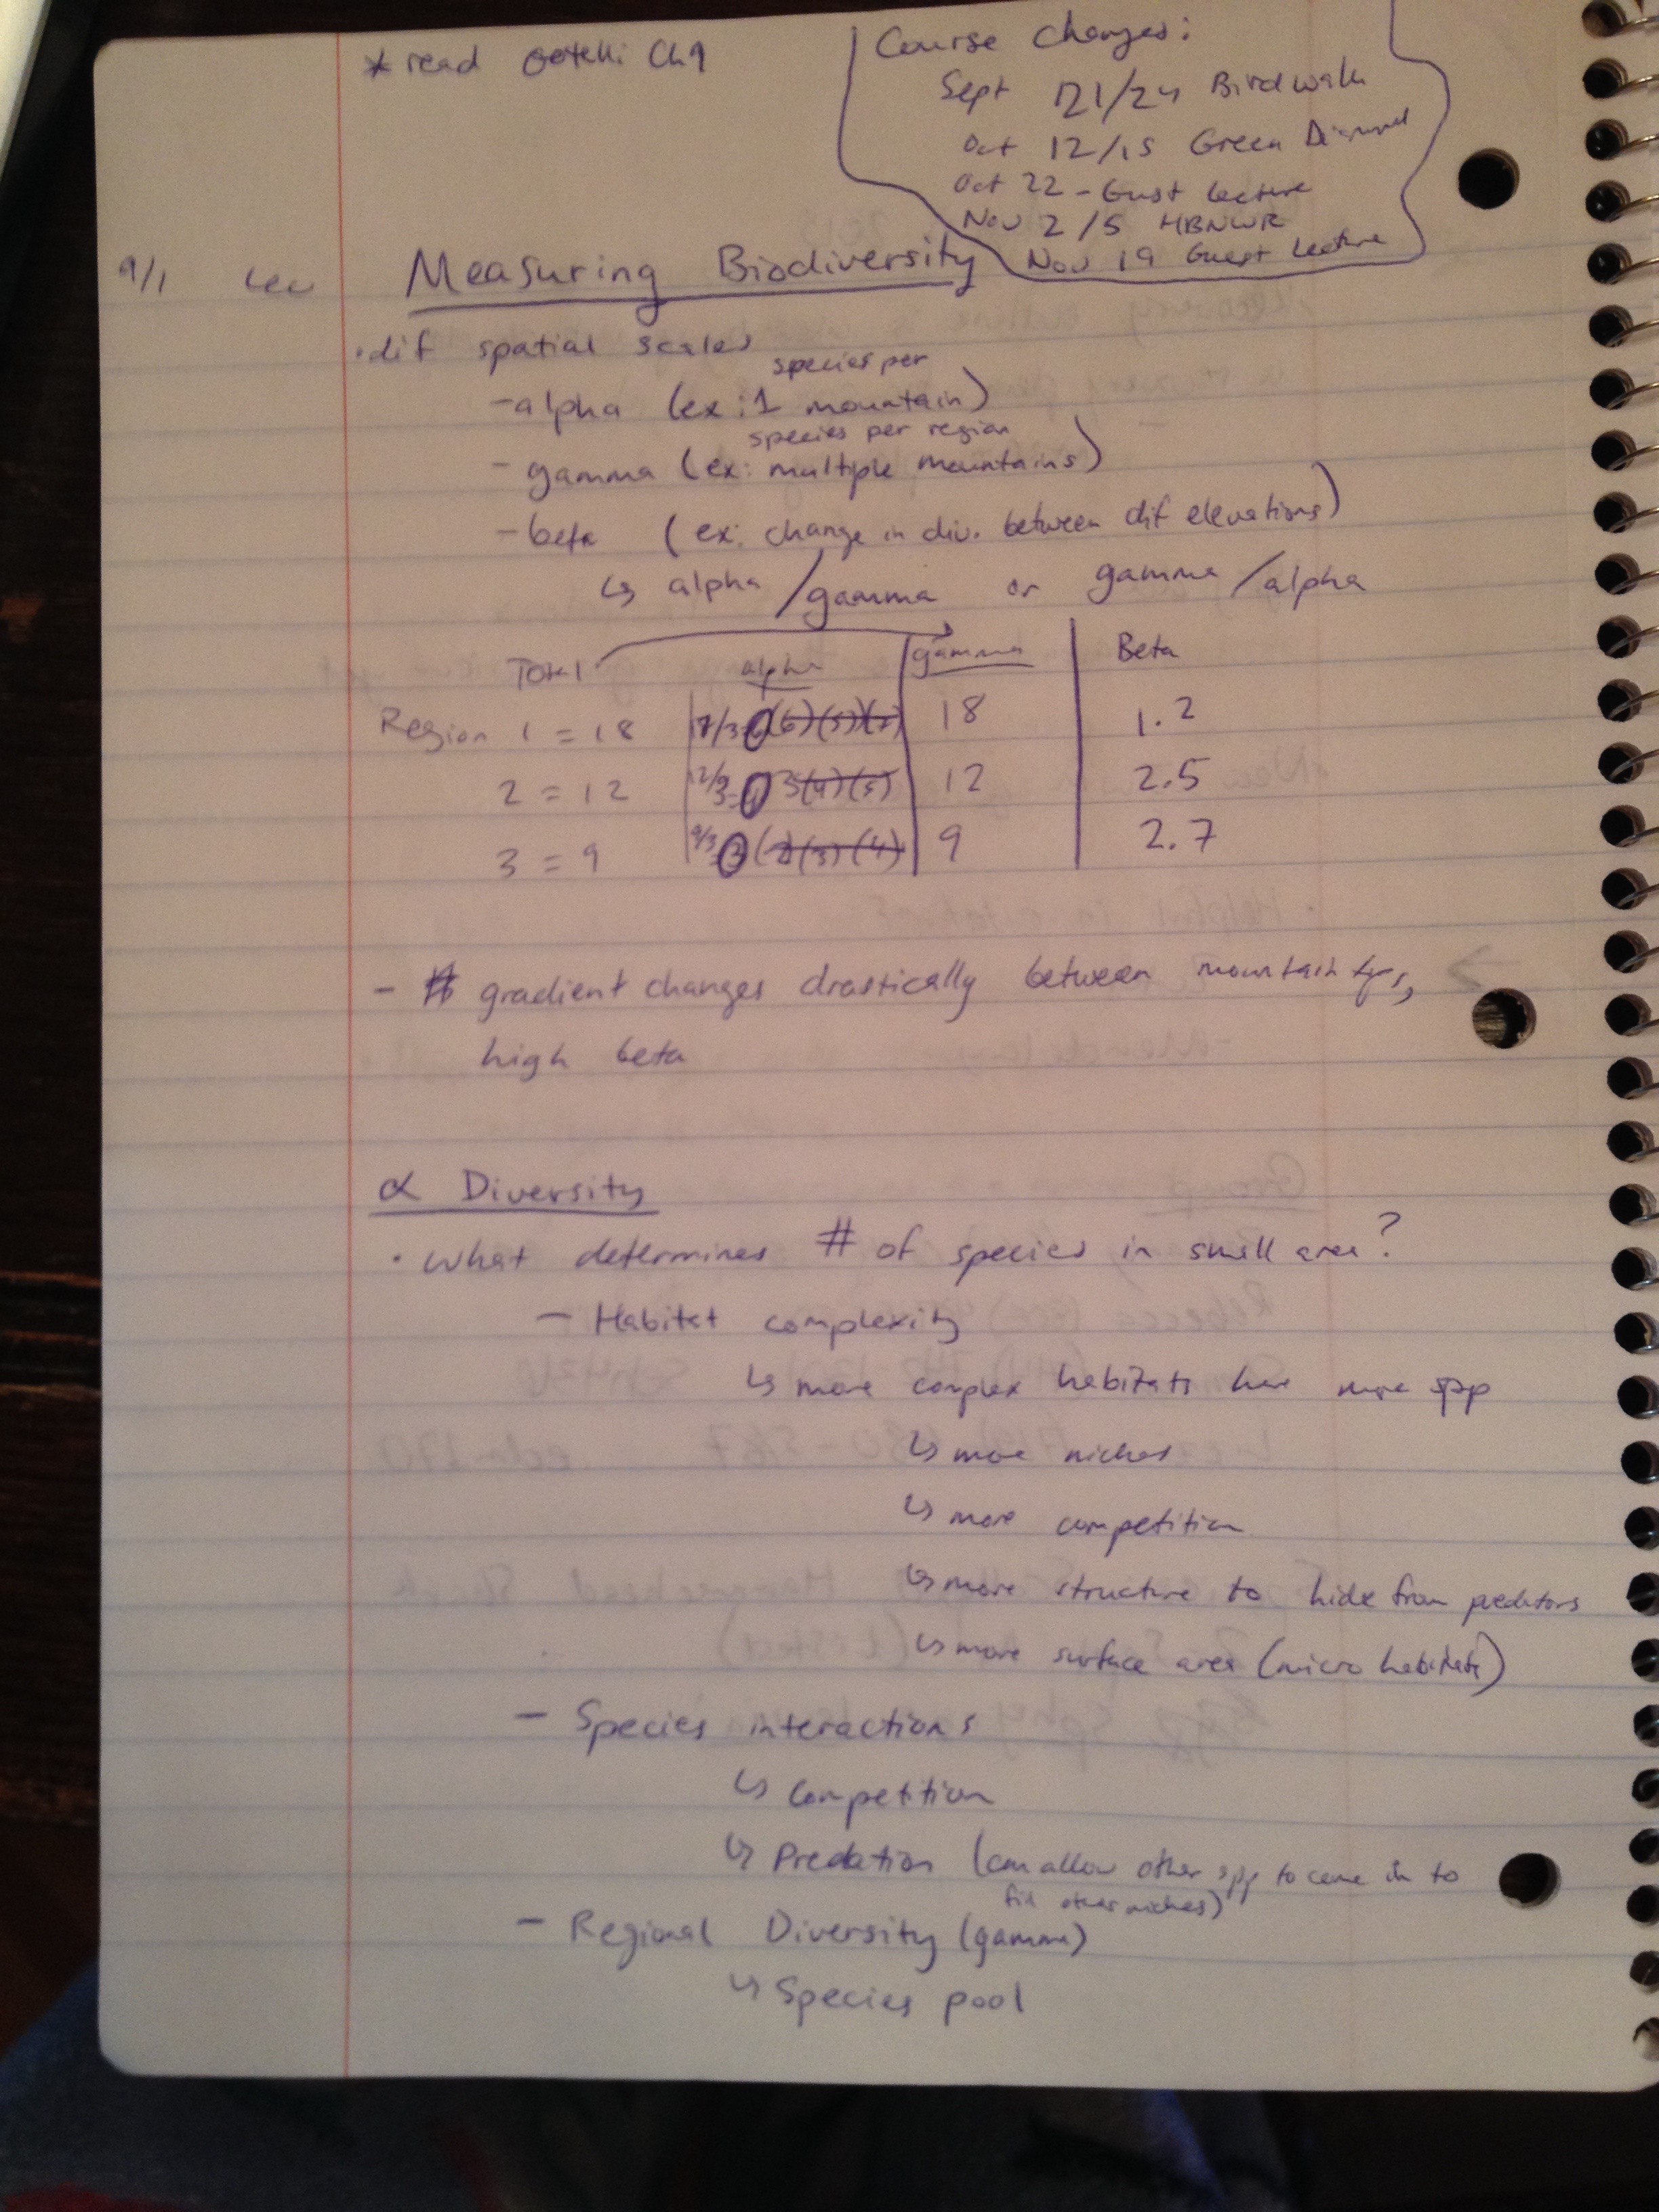 * read Gotelli Ch 1
Course Changes:
Sept 21/24 Birdwalk
Oct 12/15 Green Diamond
Oct 22 - Gust Lecture
Nov 2/5 HBNWR
Nov 19 Guest Lecture
9/1 Lec Measuring Biodiversity
· dif spatial scales
species per
- alpha (ex: 1 mountain)
species per region
- gamma (ex: multiple mountains)
- beta (ex: change in div. between dif elevations)
↳ alpha/gamma or gamma/alpha
Total alpha gamma Beta
Region 1 = 18 18 1.2
2 = 12 12 2.5
3 = 9 9 2.7
- gradient changes drastically between mountain
high beta
α Diversity
· What determines # of species in small area?
- Habitat complexity
↳ more complex habitats have more spp
↳ more niches
↳ more competition
↳ more structure to hide from predators
↳ more surface area (micro habitats)
- Species interactions
↳ Competition
↳ Predation (can allow other spp to come in to
fill other niches)
- Regional Diversity (gamma)
↳ Species pool